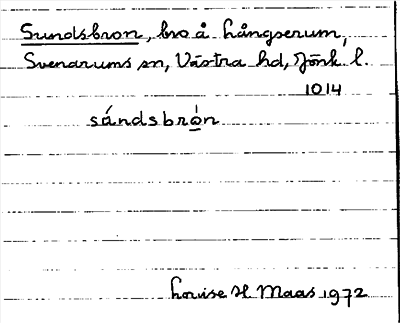 Sundsbron, bro å Långserum,
Svenarums sn, Västra hd, Jönk. l.
1014
sándsbrón
Louise H Maas 1972